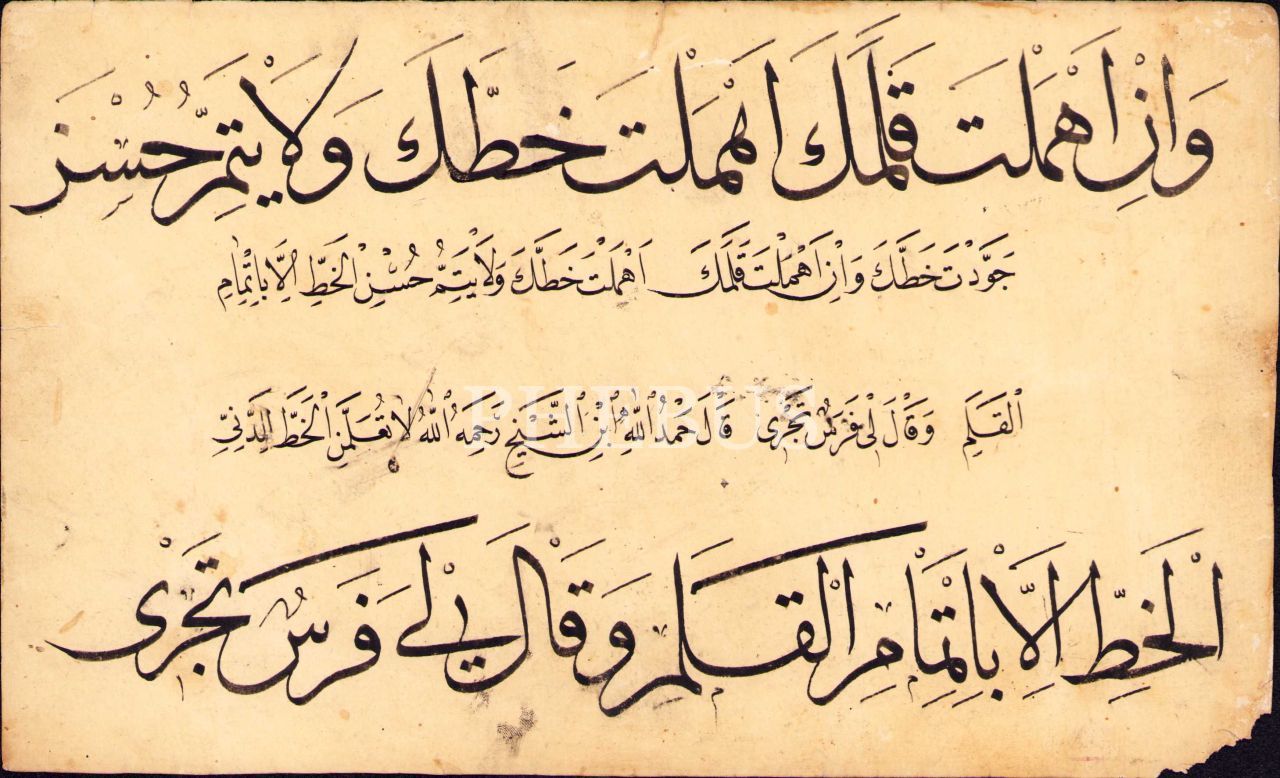 وَاِنْ اَهْمَلْتَ قَلَمَكَ اَهْمَلْتَ خَطَّكَ وَلَا يَتِمُّ حُسْنُ
جَوَّدْتَ خَطَّكَ وَاِنْ اَهْمَلْتَ قَلَمَكَ اَهْمَلْتَ خَطَّكَ وَلَا يَتِمُّ حُسْنُ الْخَطِّ اِلَّا بِاِتْمَامِ
PHEBUS
الْقَلَمِ وَقَالَ لِي فَرَسٌ تَجْرِى قَالَ حَمْدُ اللهِ ابْنِ الشَّيْخِ رَحِمَهُ اللهُ لَا تُعَلِّمَنَّ الْخَطَّ
الْخَطِّ اِلَّا بِاِتْمَامِ الْقَلَمِ وَقَالَ لِي فَرَسٌ تَجْرِى